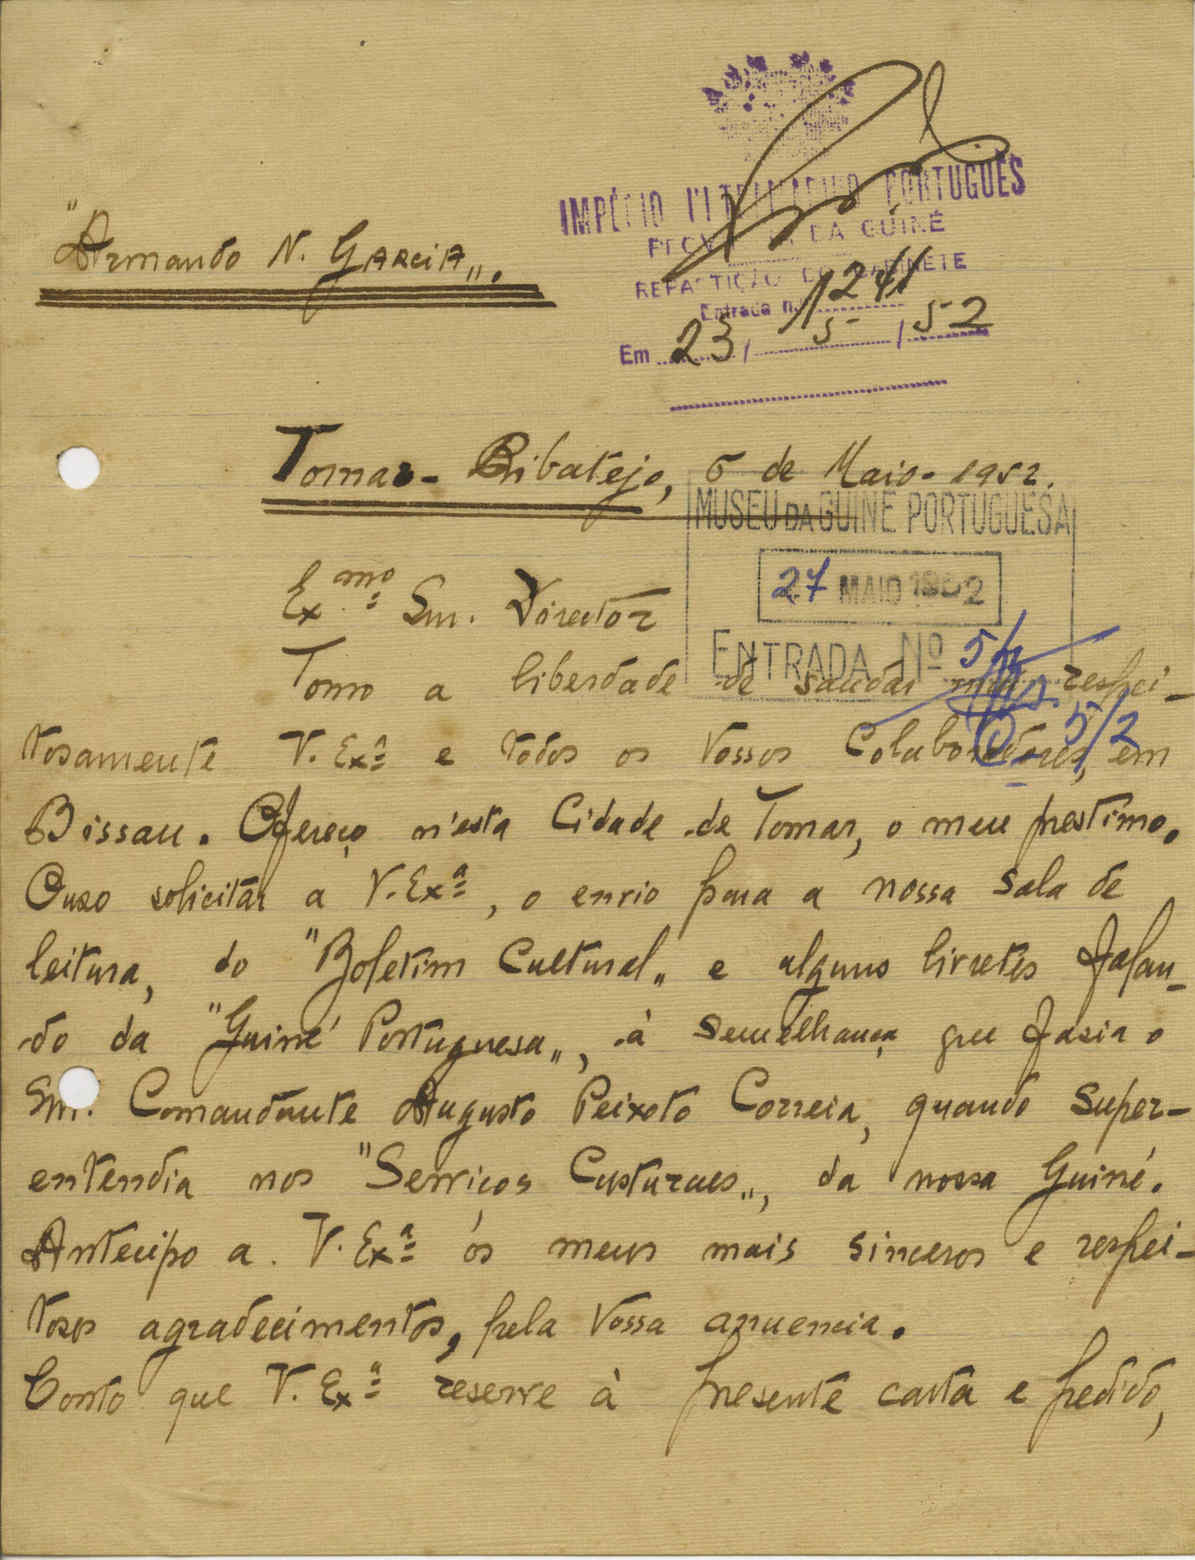 "Armando N. Garcia".
IMPÉRIO ULTRAMARINO PORTUGUÊS
PROVÍNCIA DA GUINÉ
REPARTIÇÃO DO GABINETE
Entrada n.º 1241
Em 23 / 5 / 52
Tomar - Ribatejo, 6 de Maio - 1952.
MUSEU DA GUINÉ PORTUGUESA
27 MAIO 1952
ENTRADA Nº
Exmo. Snr. Diretor
Tomo a liberdade de saudar mui respei-
tosamente V. Exª e todos os Vossos Colaboradores, em
Bissau. Ofereço n'esta Cidade de Tomar, o meu prestimo.
Ouso solicitar a V. Exª, o envio para a nossa Sala de
leitura, do "Boletim Cultural" e alguns livretes falan-
do da "Guiné Portuguesa", à semelhança que fasia o
Snr. Comandante Augusto Peixoto Correia, quando super-
entendia nos "Serviços Custuraes", da nossa Guiné.
Antecipo a V. Exª os meus mais sinceros e respei-
tosos agradecimentos, pela Vossa anuencia.
Conto que V. Exª reserve à presente carta e pedido,